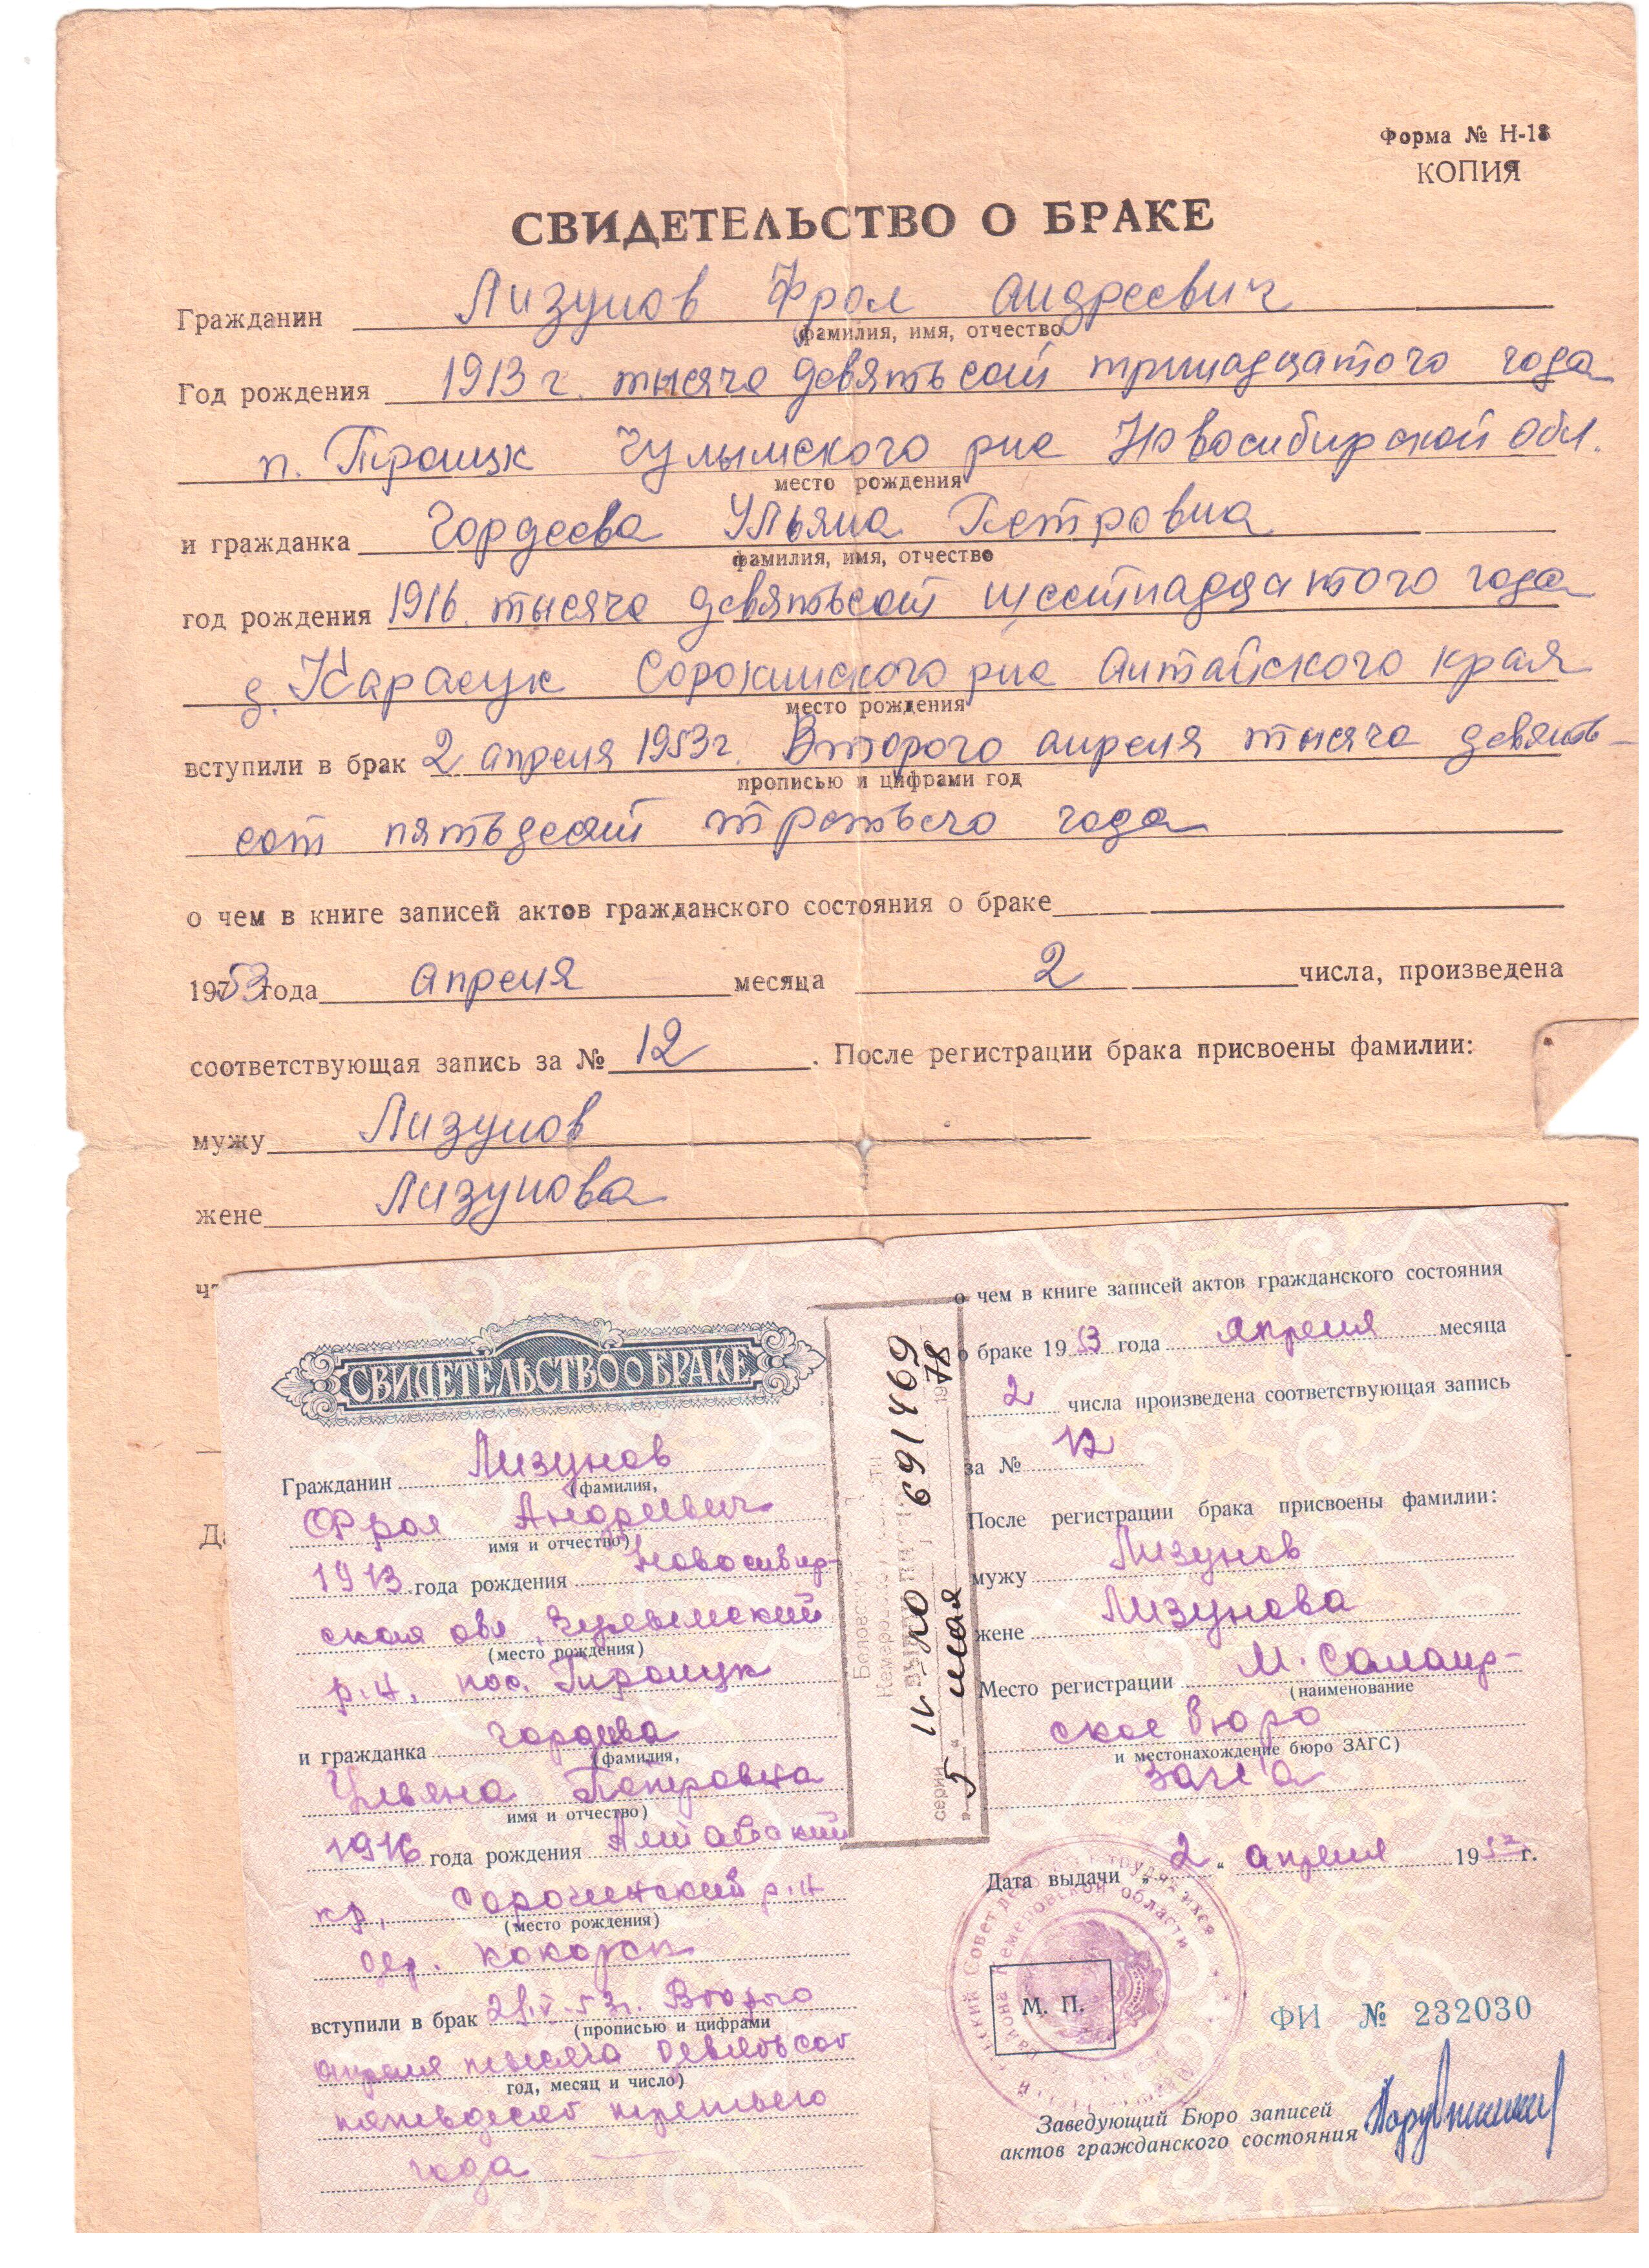 Форма № Н-13
КОПИЯ
СВИДЕТЕЛЬСТВО О БРАКЕ
Гражданин Лизунов Фрол Андреевич
(фамилия, имя, отчество
Год рождения 1913 г. тысяча девятьсот тринадцатого года
п. Троицк Чулымского р-на Новосибирской обл.
место рождения
и гражданка Гордеева Ульяна Петровна
фамилия, имя, отчество
год рождения 1916. тысяча девятьсот шестнадцатого года
д. Карасук Сорокинского р-на Алтайского края
место рождения
вступили в брак 2 апреля 1953 г. Второго апреля тысяча девять-
прописью и цифрами год
сот пятьдесят третьего года
о чем в книге записей актов гражданского состояния о браке
1953 года апреля месяца 2 числа, произведена
соответствующая запись за № 12. После регистрации брака присвоены фамилии:
мужу Лизунов
жене Лизунова
СВИДЕТЕЛЬСТВО О БРАКЕ
Гражданин Лизунов
(фамилия,
Фрол Андреевич
имя и отчество)
1913 года рождения Новосибир-
ская обл, Чулымский
(место рождения)
р.н, пос. Троицк
и гражданка Гордеева
(фамилия,
Ульяна Петровна
имя и отчество)
1916 года рождения Алтайский
кр, Сорокинский р.н
(место рождения)
дер.
вступили в брак 53г. Второго
(прописью и цифрами
апреля тысяча девятьсот
год, месяц и число)
пятьдесят третьего
года
IV-ЛО 691469
серии
"5" мая 1978
о чем в книге записей актов гражданского состояния
о браке 1953 года апреля месяца
2 числа произведена соответствующая запись
за № 12
После регистрации брака присвоены фамилии:
мужу Лизунов
жене Лизунова
Место регистрации М. Салаир-
(наименование
ское бюро
и местонахождение бюро ЗАГС)
загса
Дата выдачи "2" апреля 195 г.
Кемеровской области
М. П.
ФИ № 232030
Заведующий Бюро записей
актов гражданского состояния